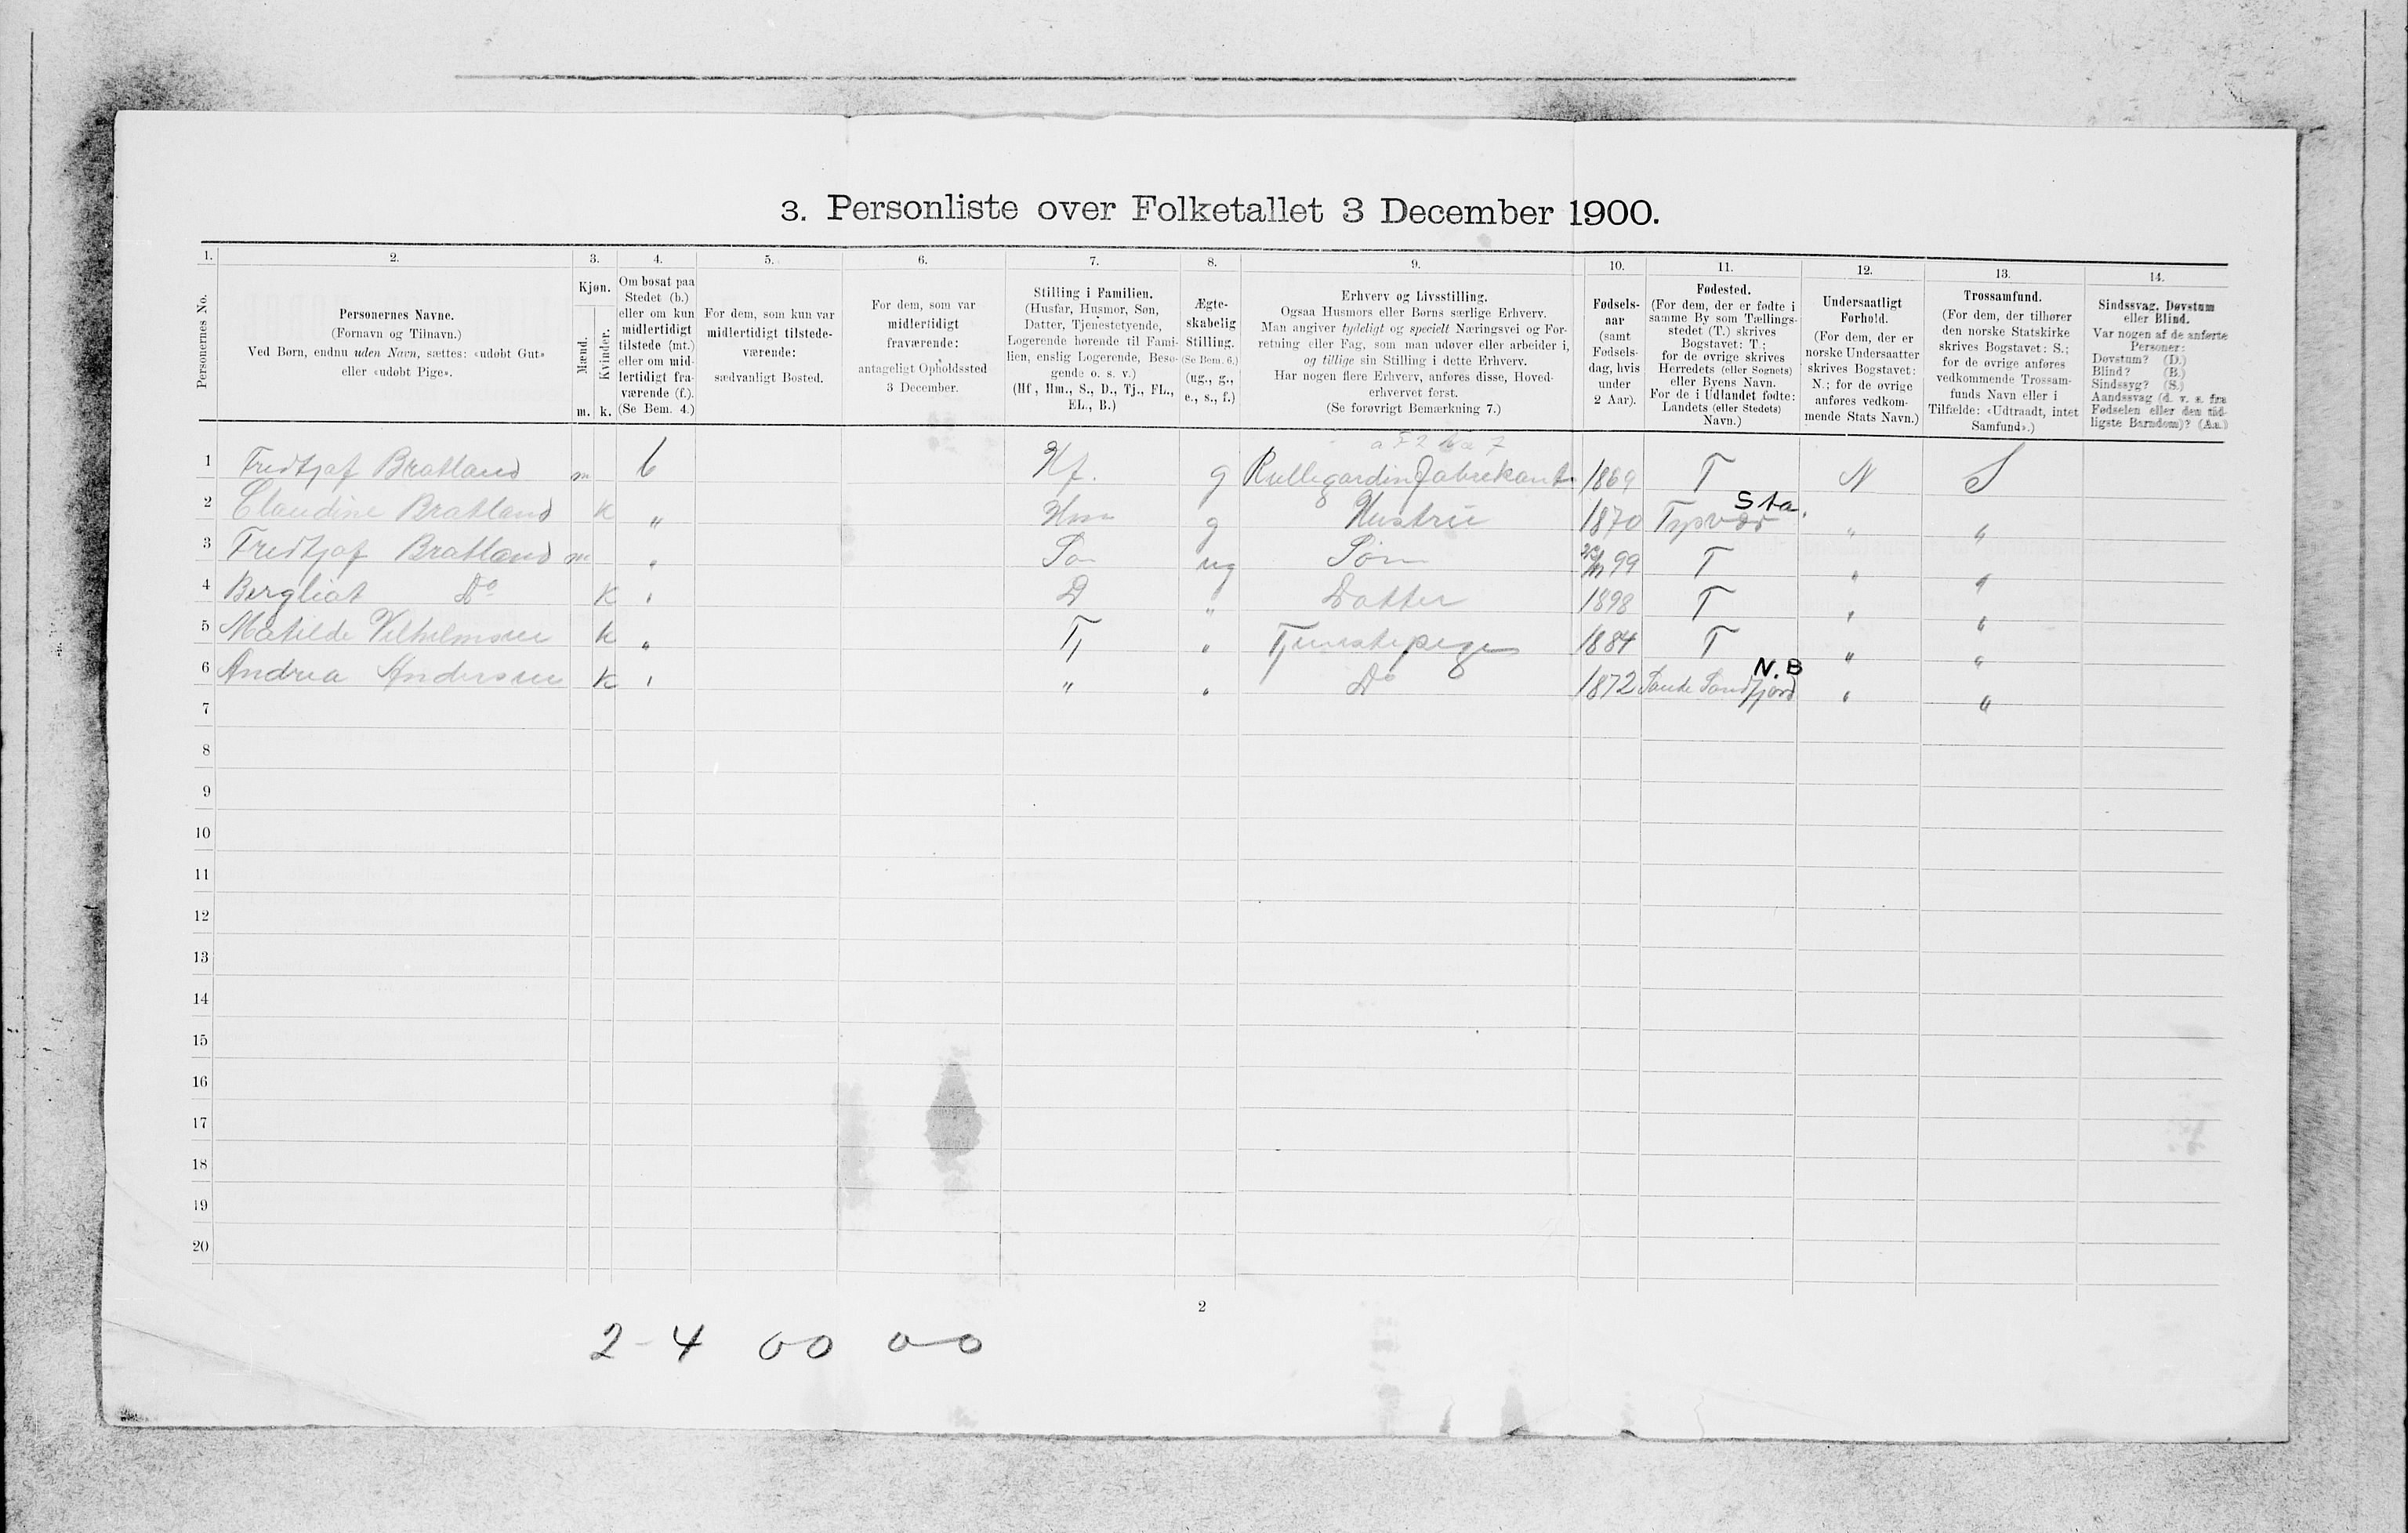 3. Personliste over Folketallet 3 December 1900.
1. 2. 3. 4. 5. 6. 7. 8. 9. 10. 11. 12. 13. 14.
Personernes No.
Personernes Navne.
(Fornavn og Tilnavn.)
Ved Børn, endnu uden Navn, sættes: «udøbt Gut»
eller «udøbt Pige».
Kjøn.
Mænd.
Kvinder.
m. k.
Om bosat paa
Stedet (b.)
eller om kun
midlertidigt
tilstede (mt.)
eller om mid-
lertidigt fra-
værende (f.).
(Se Bem. 4.)
For dem, som kun var
midlertidigt tilstede-
værende:
sædvanligt Bosted.
For dem, som var
midlertidigt
fraværende:
antageligt Opholdssted
3 December.
Stilling i Familien.
(Husfar, Husmor, Søn,
Datter, Tjenestetyende,
Logerende hørende til Fami-
lien, enslig Logerende, Besø-
gende o. s. v.)
(Hf., Hm., S., D., Tj., FL.,
EL., B.)
Ægte-
skabelig
Stilling.
(Se Bem. 6.)
(ug., g.,
e., s., f.)
Erhverv og Livsstilling.
Ogsaa Husmors eller Børns særlige Erhverv.
Man angiver tydeligt og specielt Næringsvei og For-
retning eller Fag, som man udøver eller arbeider i,
og tillige sin Stilling i dette Erhverv.
Har nogen flere Erhverv, anføres disse, Hoved-
erhvervet først.
(Se forøvrigt Bemærkning 7.)
Fødsels-
aar
(samt
Fødsels-
dag, hvis
under
2 Aar).
Fødested.
(For dem, der er fødte i
samme By som Tællings-
stedet (T.) skrives
Bogstavet: T.;
for de øvrige skrives
Herredets (eller Sognets)
eller Byens Navn.
For de i Udlandet fødte:
Landets (eller Stedets)
Navn.)
Undersaatligt
Forhold.
(For dem, der er
norske Undersaatter
skrives Bogstavet:
N.; for de øvrige
anføres vedkom-
mende Stats Navn.)
Trossamfund.
(For dem, der tilhører
den norske Statskirke
skrives Bogstavet: S.;
for de øvrige anføres
vedkommende Trossam-
funds Navn eller i
Tilfælde: «Udtraadt, intet
Samfund».)
Sindssvag, Døvstum
eller Blind.
Var nogen af de anførte
Personer:
Døvstum? (D.)
Blind? (B.)
Sindssyg? (S.)
Aandssvag (d. v. s. fra
Fødselen eller den tid-
ligste Barndom)? (Aa.)
1 Fredtjof Bratland m b Hf. g Rullegardinfabrikant 1869 T N S
2 Claudine Bratland k „ Hm g Hustru 1870 Tysvær Sta. „ „
3 Fredtjof Bratland m „ Søn ug Søn 99 T „ „
4 Bergliot Do k „ D „ Datter 1898 T „ „
5 Matilde Vilhelmsen k „ Tj „ Tjenestepige 1884 T „ „
6 Andrea Andersen k „ „ „ Do 1872 Sande Søndfjord N.B „ „
7
8
9
10
11
12
13
14
15
16
17
18
19
20
2
2-4 00 0-0